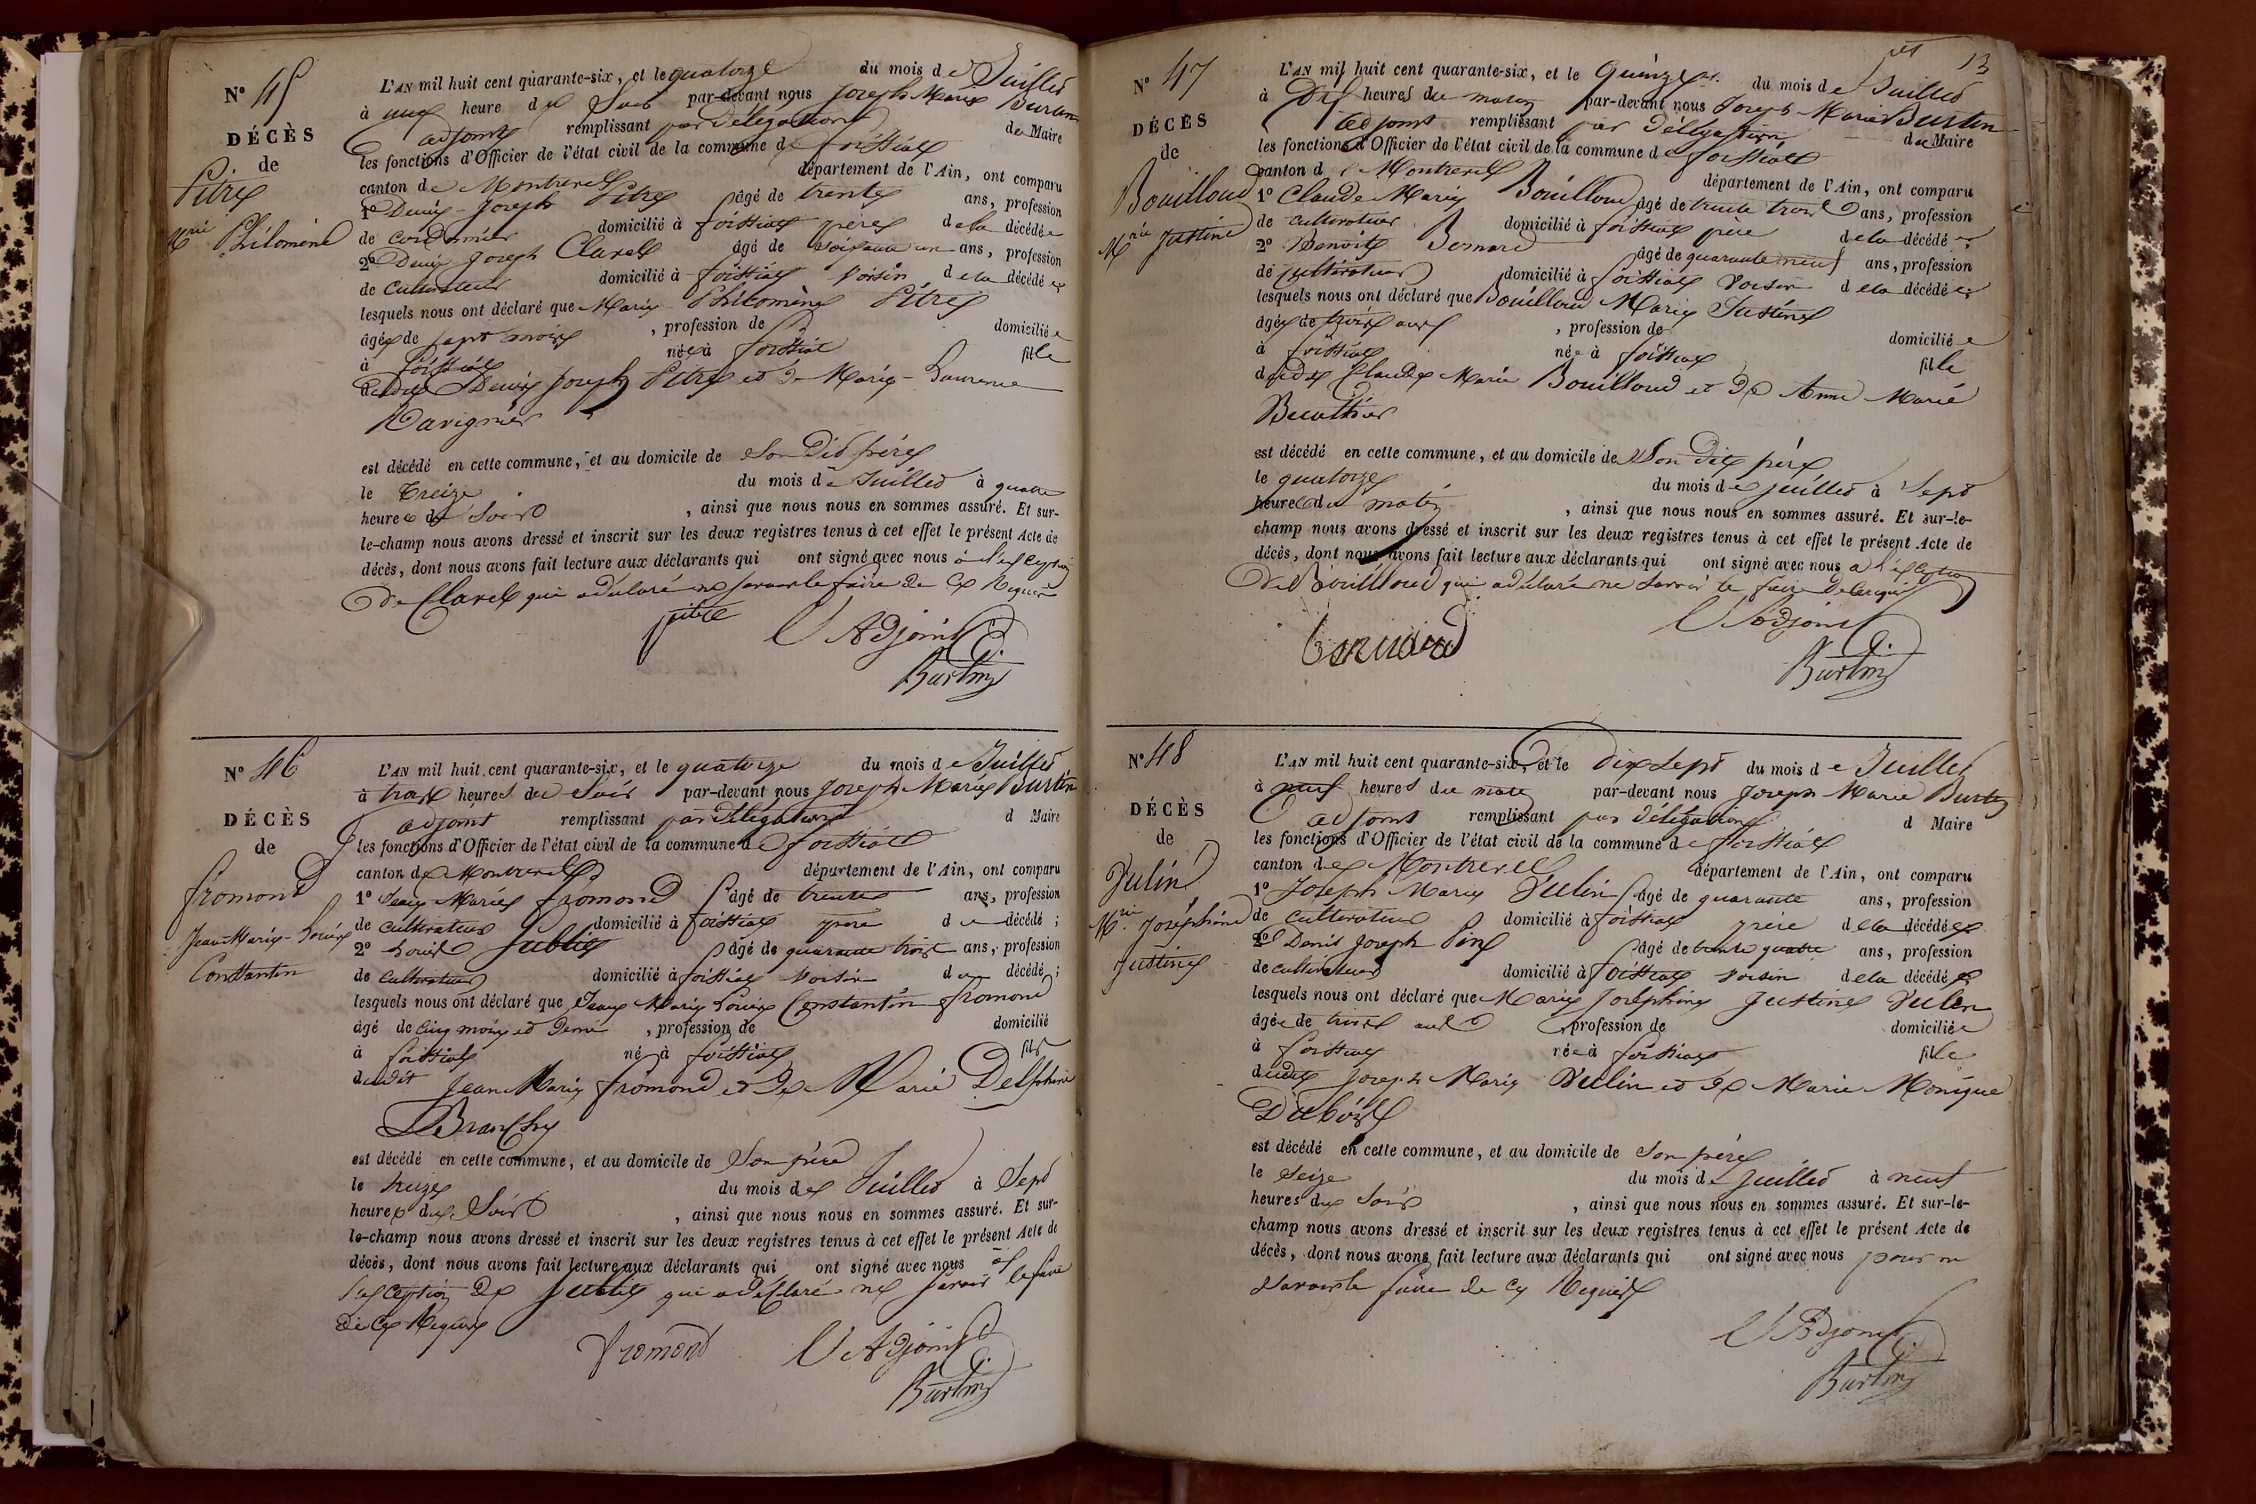 N° 45
DÉCÈS
de
Pitre
Mrie Philomène
L'AN mil huit cent quarante-six, et le quatorze du mois de Juillet
à une heure du Soir par-devant nous Joseph Marie Burtin
adjoint remplissant par délégation de Maire
les fonctions d'Officier de l'état civil de la commune de foissiat
canton de Montrevel département de l'Ain, ont comparu
1° Denis-Joseph Pitre âgé de trente ans, profession
de cordonnier domicilié à foissiat père de la décédée
2° Denis Joseph Clavel âgé de soixante un ans, profession
de cultivateur domicilié à foissiat voisin de la décédée
lesquels nous ont déclaré que Marie Philomène Pitre
âgée de sept mois , profession de domiciliée
à foissiat née à foissiat fille
dudit Denis Joseph Pitre et de Marie-Laurence
Ravignier
est décédé en cette commune, et au domicile de Son dit père
le treize du mois de Juillet à quatre
heures du Soir , ainsi que nous nous en sommes assuré. Et sur-
le-champ nous avons dressé et inscrit sur les deux registres tenus à cet effet le présent Acte de
décès, dont nous avons fait lecture aux déclarants qui ont signé avec nous à l'exception
de Clavel qui a déclaré ne savoir le faire de ce Requis
pitre L'Adjoint
Burtin
N° 46
DÉCÈS
de
fromond
Jean-Marie-Louis
Constantin
L'AN mil huit cent quarante-six, et le quatorze du mois de Juillet
à trois heures du Soir par-devant nous Joseph Marie Burtin
adjoint remplissant par délégation d Maire
les fonctions d'Officier de l'état civil de la commune de foissiat
canton de Montrevel département de l'Ain, ont comparu
1° Jean Marie fromond âgé de trente ans, profession
de cultivateur domicilié à foissiat père du décédé ;
2° Louis Jublie âgé de quarante trois ans, profession
de cultivateur domicilié à foissiat voisin du décédé ;
lesquels nous ont déclaré que Jean Marie Louis Constantin fromond
âgé de cinq mois et demi , profession de domicilié
à foissiat né à foissiat fils
dudit Jean Marie fromond et de Marie Delphine
Branchy
est décédé en cette commune, et au domicile de Son père
le treize du mois de Juillet à Sept
heures du Soir , ainsi que nous nous en sommes assuré. Et sur-
le-champ nous avons dressé et inscrit sur les deux registres tenus à cet effet le présent Acte de
décès, dont nous avons fait lecture aux déclarants qui ont signé avec nous à
l'exception de Jublie qui a déclaré ne savoir le faire
de ce Requis
fromond L'Adjoint
Burtin
13
N° 47
DÉCÈS
de
Bouilloud
Mrie Justine
L'AN mil huit cent quarante-six, et le Quinze du mois de Juillet
à Dix heures du matin par-devant nous Joseph-Marie Burtin
adjoint remplissant par délégation de Maire
les fonctions d'Officier de l'état civil de la commune de foissiat
canton de Montrevel département de l'Ain, ont comparu
1° Claude Marie Bouilloud âgé de trente trois ans, profession
de cultivateur domicilié à foissiat père de la décédée ;
2° Benoit Bernard âgé de quarante neuf ans, profession
de cultivateur domicilié à foissiat voisin de la décédée ;
lesquels nous ont déclaré que Bouilloud Marie Justine
âgée de trois ans , profession de domiciliée
à foissiat née à foissiat fille
dudit Claude Marie Bouilloud et de Anne Marie
Buathier
est décédé en cette commune, et au domicile de Son dit père
le quatorze du mois de juillet à Sept
heures du matin , ainsi que nous nous en sommes assuré. Et sur-le-
champ nous avons dressé et inscrit sur les deux registres tenus à cet effet le présent Acte de
décès, dont nous avons fait lecture aux déclarants qui ont signé avec nous à l'exception
de Bouilloud qui a déclaré ne Savoir le faire de ce requis
bernard L'adjoint
Burtin
N° 48
DÉCÈS
de
Vulin
Mrie Joséphine
Justine
L'AN mil huit cent quarante-six, et le Dix Sept du mois de Juillet
à neuf heures du matin par-devant nous Joseph Marie Burtin
adjoint remplissant par délégation d Maire
les fonctions d'Officier de l'état civil de la commune de foissiat
canton de Montrevel département de l'Ain, ont comparu
1° Joseph Marie Vulin âgé de quarante ans, profession
de cultivateur domicilié à foissiat père de la décédée
2° Denis Joseph Pin âgé de trente quatre ans, profession
de cultivateur domicilié à foissiat voisin de la décédée
lesquels nous ont déclaré que Marie Joséphine Justine Vulin
âgée de trois ans profession de domiciliée
à foissiat née à foissiat fille
dudit Joseph Marie Vulin et de Marie Monique
Dubois
est décédé en cette commune, et au domicile de Son père
le Seize du mois de Juillet à neuf
heures du Soir , ainsi que nous nous en sommes assuré. Et sur-le-
champ nous avons dressé et inscrit sur les deux registres tenus à cet effet le présent Acte de
décès, dont nous avons fait lecture aux déclarants qui ont signé avec nous pour ne
Savoir le faire de ce Requis
L'Adjoint
Burtin